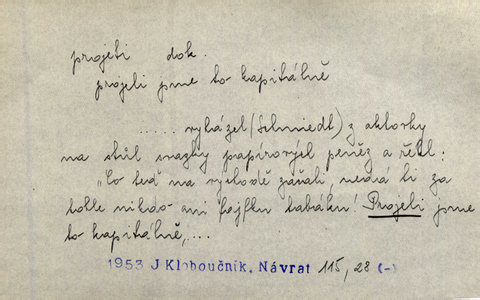 projeti dok.
projeli jsme to kapitálně
..... vyházel (Schmiedt) z aktovky
na stůl svazky papírových peněz a řekl:
„Co teď na východě začali, nedá ti za
tohle nikdo ani fajfku tabáku! Projeli jsme
to kapitálně,...
1953 J Kloboučník, Návrat 115, 28 (-)